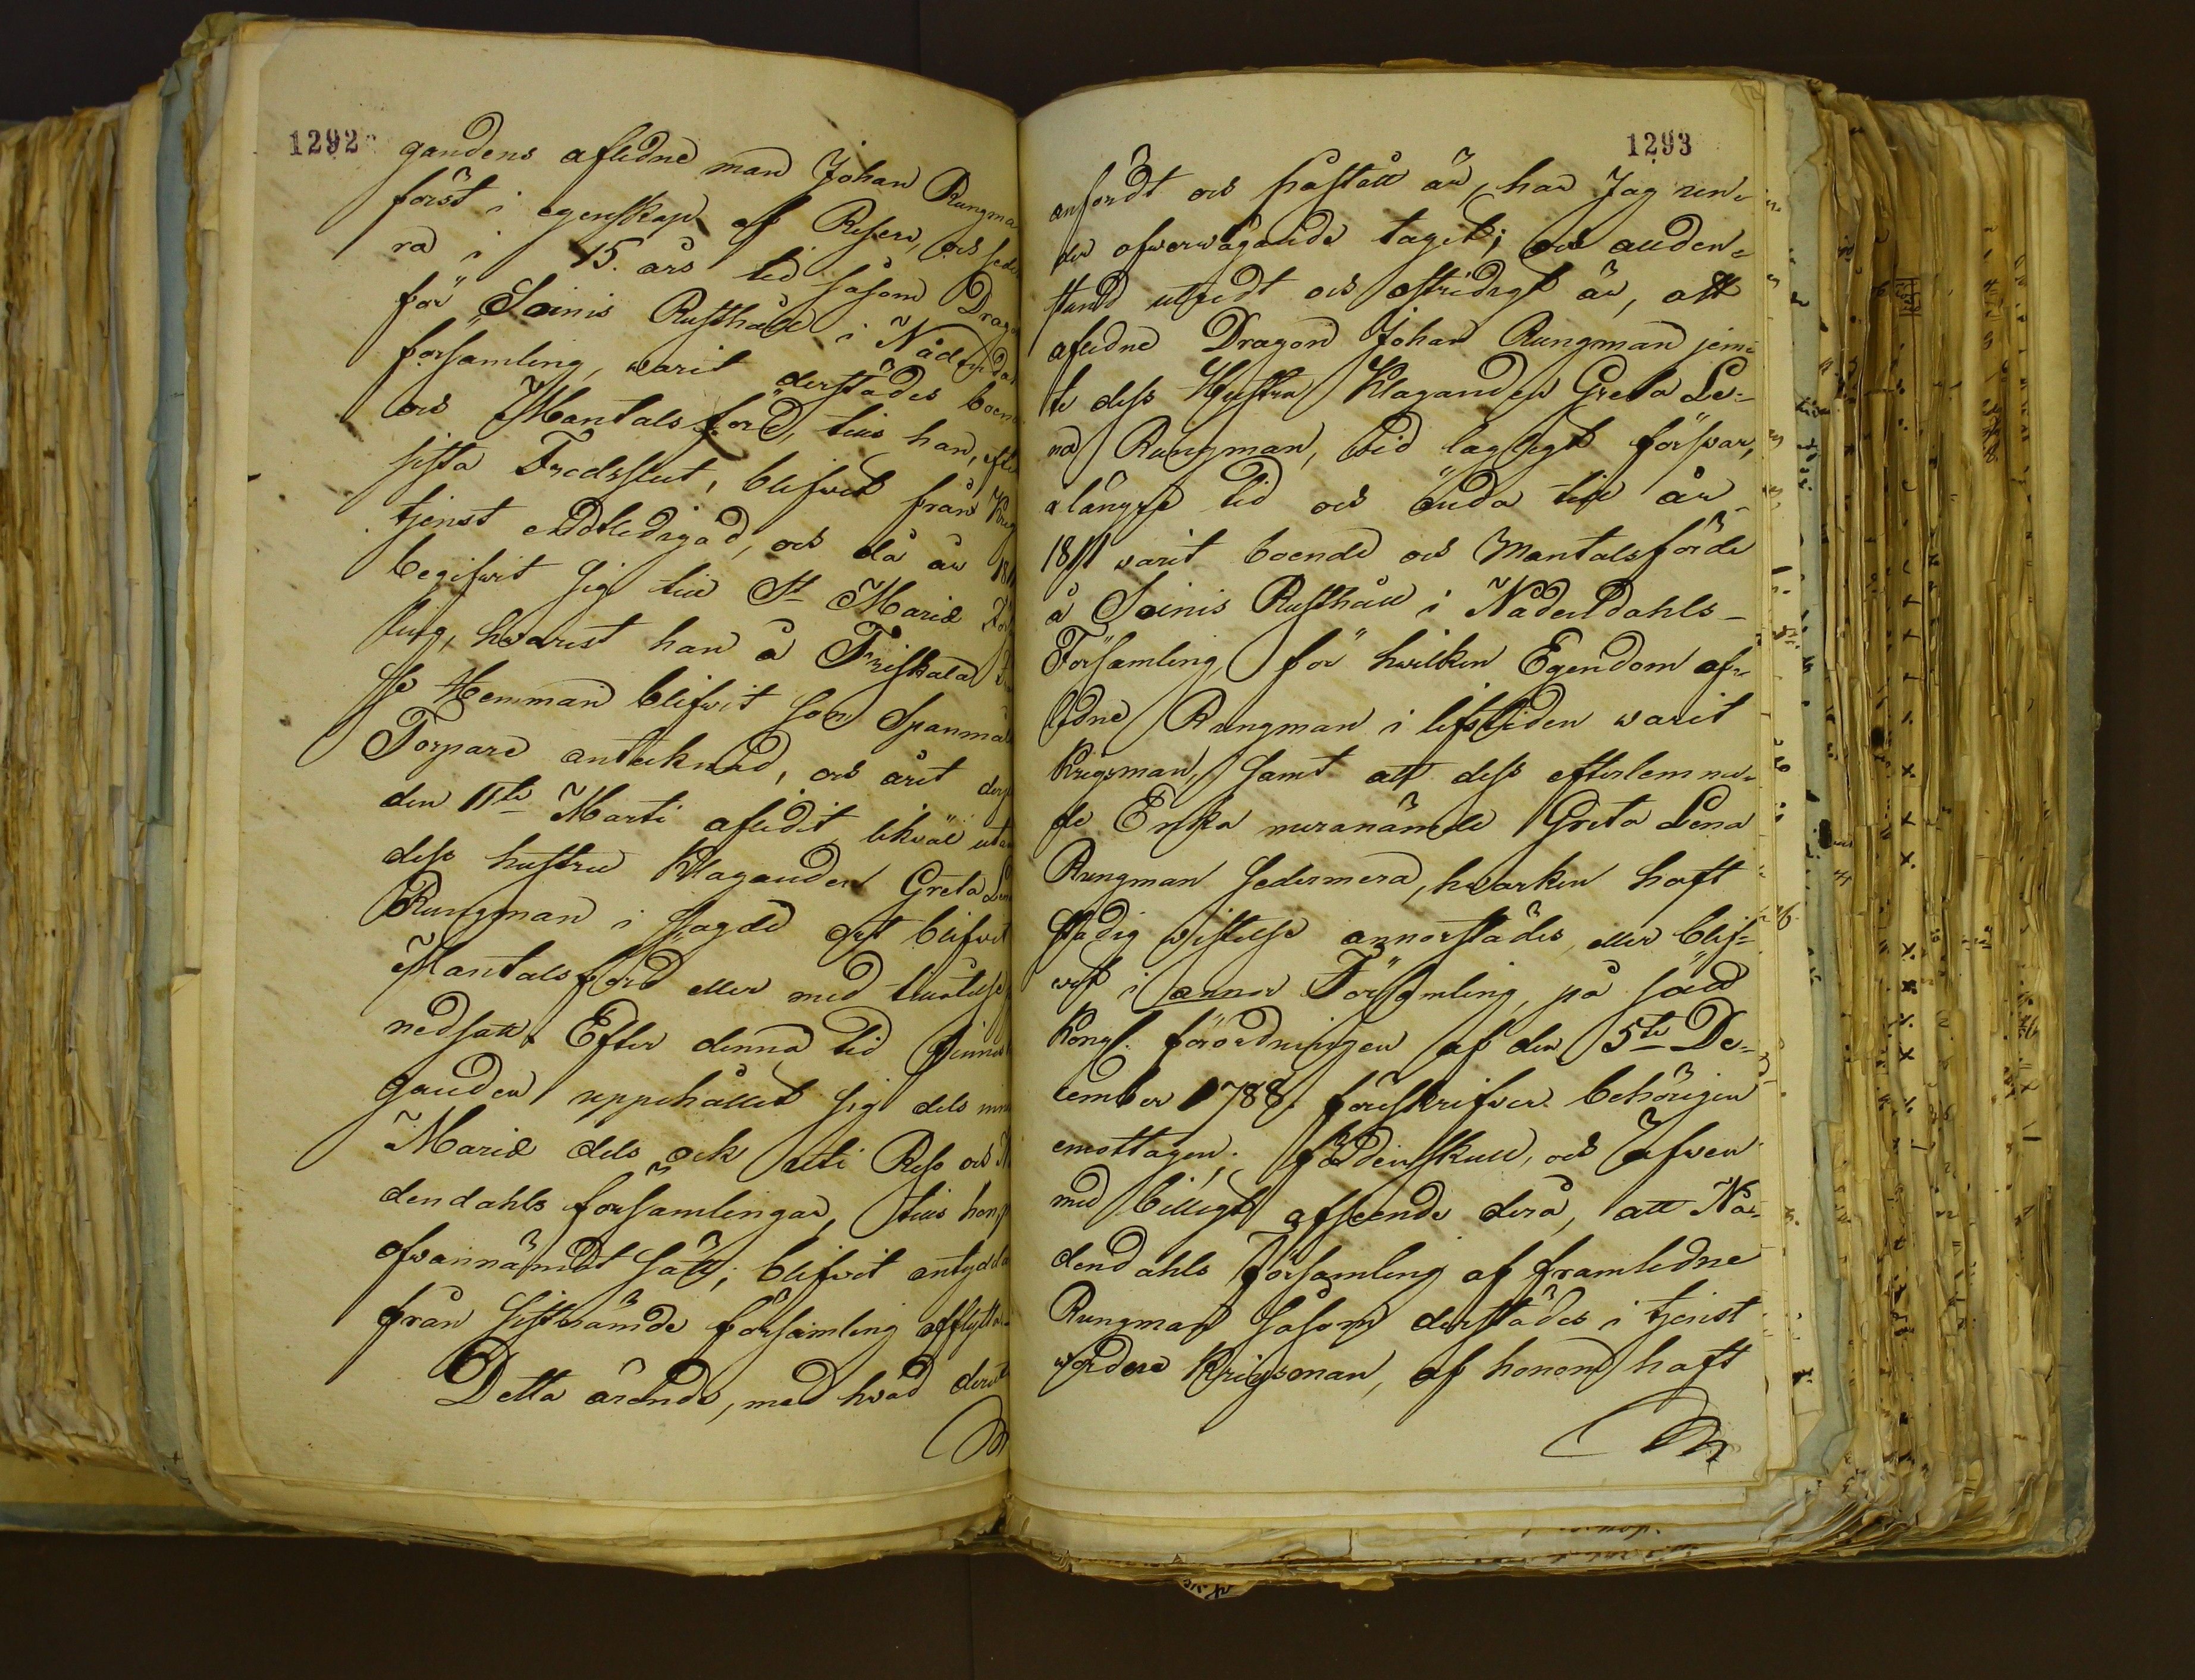 1292
gandens aflidne man Johan Rungma
först i egenskap af Reserv, och seder
ra i 15. års tid såsom Drago
för Soinis Rusthåll i Nådendah
församling, warit derstädes boen
och Mantalsförd, tills han, efte
sista Fredsslut, blifwit från Krig
tjenst entledigad, och då år 181
begifwit sig till St Mariæ För
ling, hwarest han å Friskala
se Hemman blifwit som Spanmåls
Torpare antecknad, och året derp
den 11te Marti aflidit likwäl uta
dess hustru Klaganden Greta Len
Rungman i slagde ort blifwit
Mantalsförd eller med tillåtelse
nedsatt. Efter denna tid
ganden uppehållit sig dels
Mariæ dels ock uti Reso och N
dendahls församlingar, tills hon
ofwannämdt sätt, blifwit antydd
från sistnämde församling afflytta
Detta ärende, med hwad deruti
1293
anfördt och påstått är, har Jag un-
der öfwerwägande tagit; och alden-
stund utredt och ostridigt är, att
aflidne Dragon Johan Rungman jem-
te dess Hustru Klaganden Greta Le-
na Rungman, wid lagligt förswar,
alängre tid och ända till år
1811 warit boende och Mantalsförde
å Soinis Rusthåll i Nådendahls-
Församling, för hwilken Egendom af-
lidne Rungman i lifstiden warit
Krigsman, samt att dess efterlemna-
de Enka meranämde Greta Lena
Rungman sedermera, hwarken haft
stadig wistelse annorstädes, eller blif-
wit i annor Församling, på sätt
Kongl. förordningen af den 5te De-
cember 1788. föreskrifwer behörigen
emottagen; förtenskull, och äfwen
med billigt afseende derå, att Nå-
dendahls församling af framledne
Rungman såsom derstädes i tjenst
warde Krigsman, af honom haft